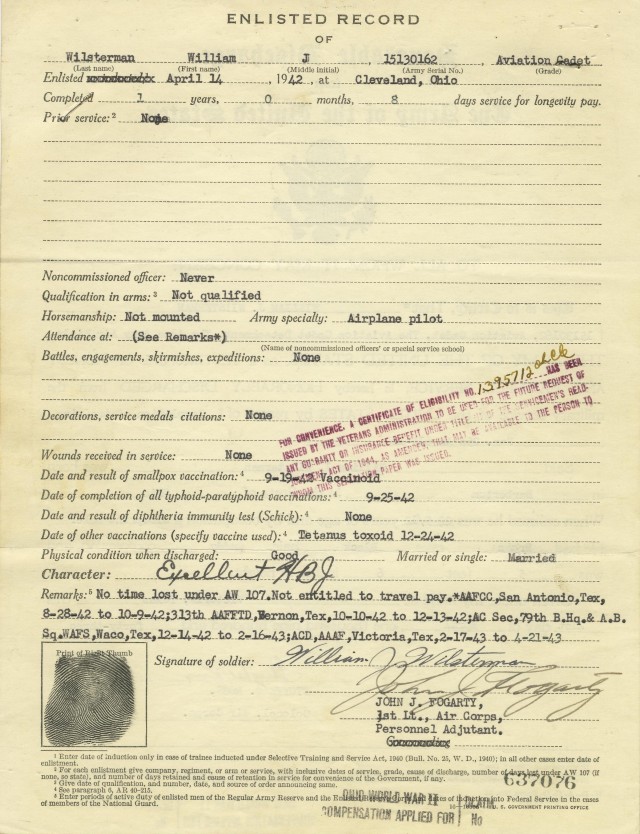 ENLISTED RECORD
OF
Wilsterman William J , 15130162 , Aviation Cadet
(Last name) (First name) (Middle initial) (Army Serial No.) (Grade)
Enlisted April 14 , 1942 , at Cleveland, Ohio
Completed 1 years, 0 months, 8 days service for longevity pay.
Prior service:² None
Noncommissioned officer: Never
Qualification in arms:³ Not qualified
Horsemanship: Not mounted Army specialty: Airplane pilot
Attendance at: (See Remarks*)
(Name of noncommissioned officers' or special service school)
Battles, engagements, skirmishes, expeditions: None
FOR CONVENIENCE, A CERTIFICATE OF ELIGIBILITY NO. 1395712 HAS BEEN
ISSUED BY THE VETERANS ADMINISTRATION TO BE USED FOR THE FUTURE REQUEST OF
ANY GUARANTY OR INSURANCE BENEFIT UNDER TITLE OF THE SERVICEMEN'S READ-
JUSTMENT ACT OF 1944, AS AMENDED, THAT MAY BE AVAILABLE TO THE PERSON TO
WHOM THIS PAPER WAS ISSUED.
Decorations, service medals citations: None
Wounds received in service: None
Date and result of smallpox vaccination:⁴ 9-19-42 Vaccinoid
Date of completion of all typhoid-paratyphoid vaccinations:⁴ 9-25-42
Date and result of diphtheria immunity test (Schick):⁴ None
Date of other vaccinations (specify vaccine used):⁴ Tetenus toxoid 12-24-42
Physical condition when discharged: Good Married or single: Married
Character: Excellent HBJ
Remarks:⁵ No time lost under AW 107.Not entitled to travel pay.*AAFCC,San Antonio,Tex,
8-28-42 to 10-9-42;313th AAFFTD,Vernon,Tex,10-10-42 to 12-13-42;AC Sec,79th B.Hq.& A.B.
Sq.WAFS,Waco,Tex,12-14-42 to 2-16-43;ACD,AAAF,Victoria,Tex,2-17-43 to 4-21-43
Print of Right Thumb
Signature of soldier: William J Wilsterman
John J Fogarty
JOHN J. FOGARTY,
1st Lt., Air Corps,
Personnel Adjutant.
Commanding
¹ Enter date of induction only in case of trainee inducted under Selective Training and Service Act, 1940 (Bull. No. 25, W. D., 1940); in all other cases enter date of
enlistment.
² For each enlistment give company, regiment, or arm or service, with inclusive dates of service, grade, cause of discharge, number of days lost under AW 107 (if
none, so state), and number of days retained and cause of retention in service for convenience of the Government, if any.
³ Give date of qualification, and number, date, and source of order announcing same.
⁴ See paragraph 6, AR 40-215.
⁵ Enter periods of active duty of enlisted men of the Regular Army Reserve and the Enlisted Reserve Corps of induction into Federal Service in the cases
of members of the National Guard.
637076
U. S. GOVERNMENT PRINTING OFFICE
OHIO WORLD WAR II
COMPENSATION APPLIED FOR
No